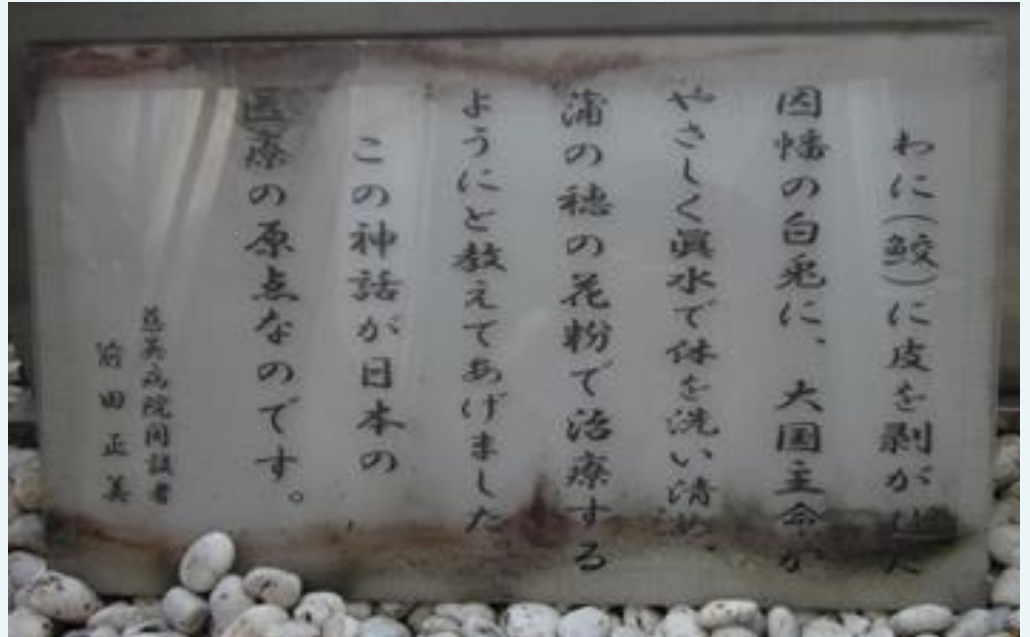 わに(鮫)に皮を剥がれた
因幡の白兎に、大国主命が
やさしく眞水で体を洗い清め、
蒲の穂の花粉で治療する
ようにと教えてあげました
この神話が日本の
医療の原点なのです。
病院開設者
前田正美